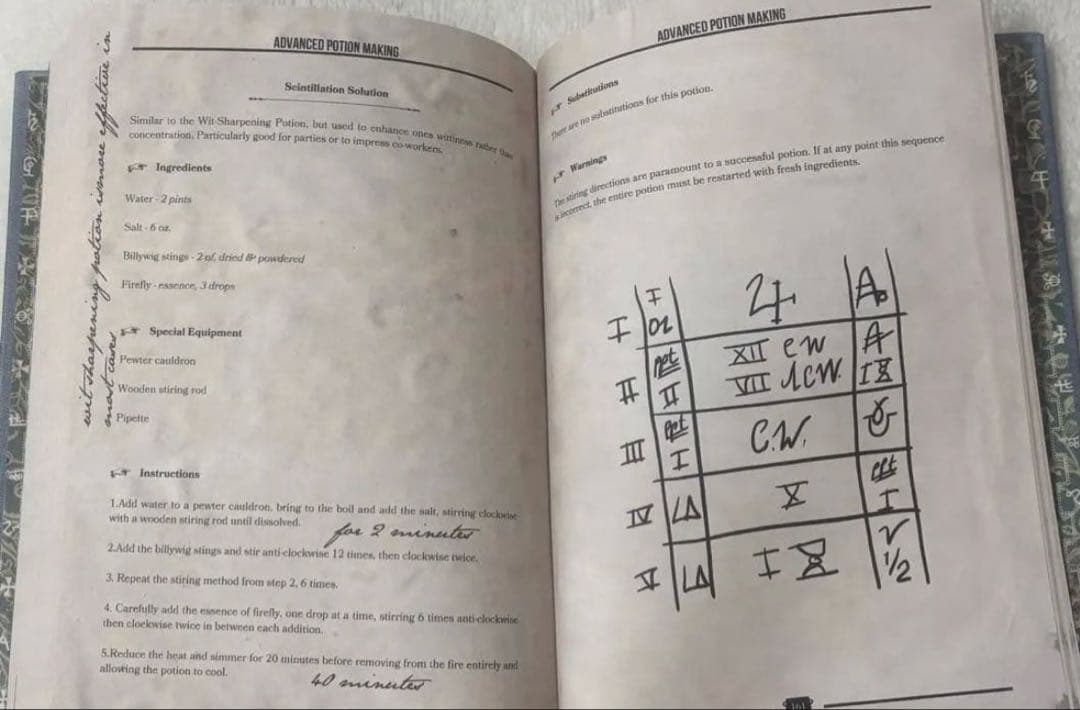 ADVANCED POTION MAKING
Scintillation Solution
Similar to the Wit-Sharpening Potion, but used to enhance ones wittiness rather than
concentration. Particularly good for parties or to impress co-workers.
Ingredients
Water - 2 pints
Salt - 6 oz.
Billywig stings - 2 of, dried & powdered
Firefly - essence, 3 drops
Special Equipment
Pewter cauldron
Wooden stiring rod
Pipette
Instructions
1.Add water to a pewter cauldron, bring to the boil and add the salt, stirring clockwise
with a wooden stiring rod until dissolved.
for 2 minutes
2.Add the billywig stings and stir anti-clockwise 12 times, then clockwise twice.
3. Repeat the stiring method from step 2, 6 times.
4. Carefully add the essence of firefly, one drop at a time, stirring 6 times anti-clockwise
then clockwise twice in between each addition.
5.Reduce the heat and simmer for 20 minutes before removing from the fire entirely and
allowing the potion to cool.
40 minutes
wit sharpening potion is more effective in
most cases
ADVANCED POTION MAKING
Substitutions
There are no substitutions for this potion.
Warnings
The stiring directions are paramount to a successful potion. If at any point this sequence
is incorrect, the entire potion must be restarted with fresh ingredients.
I I ♃
II XII CW
II VII ACW. I
III I C.W.
IV X I
V I 1/2